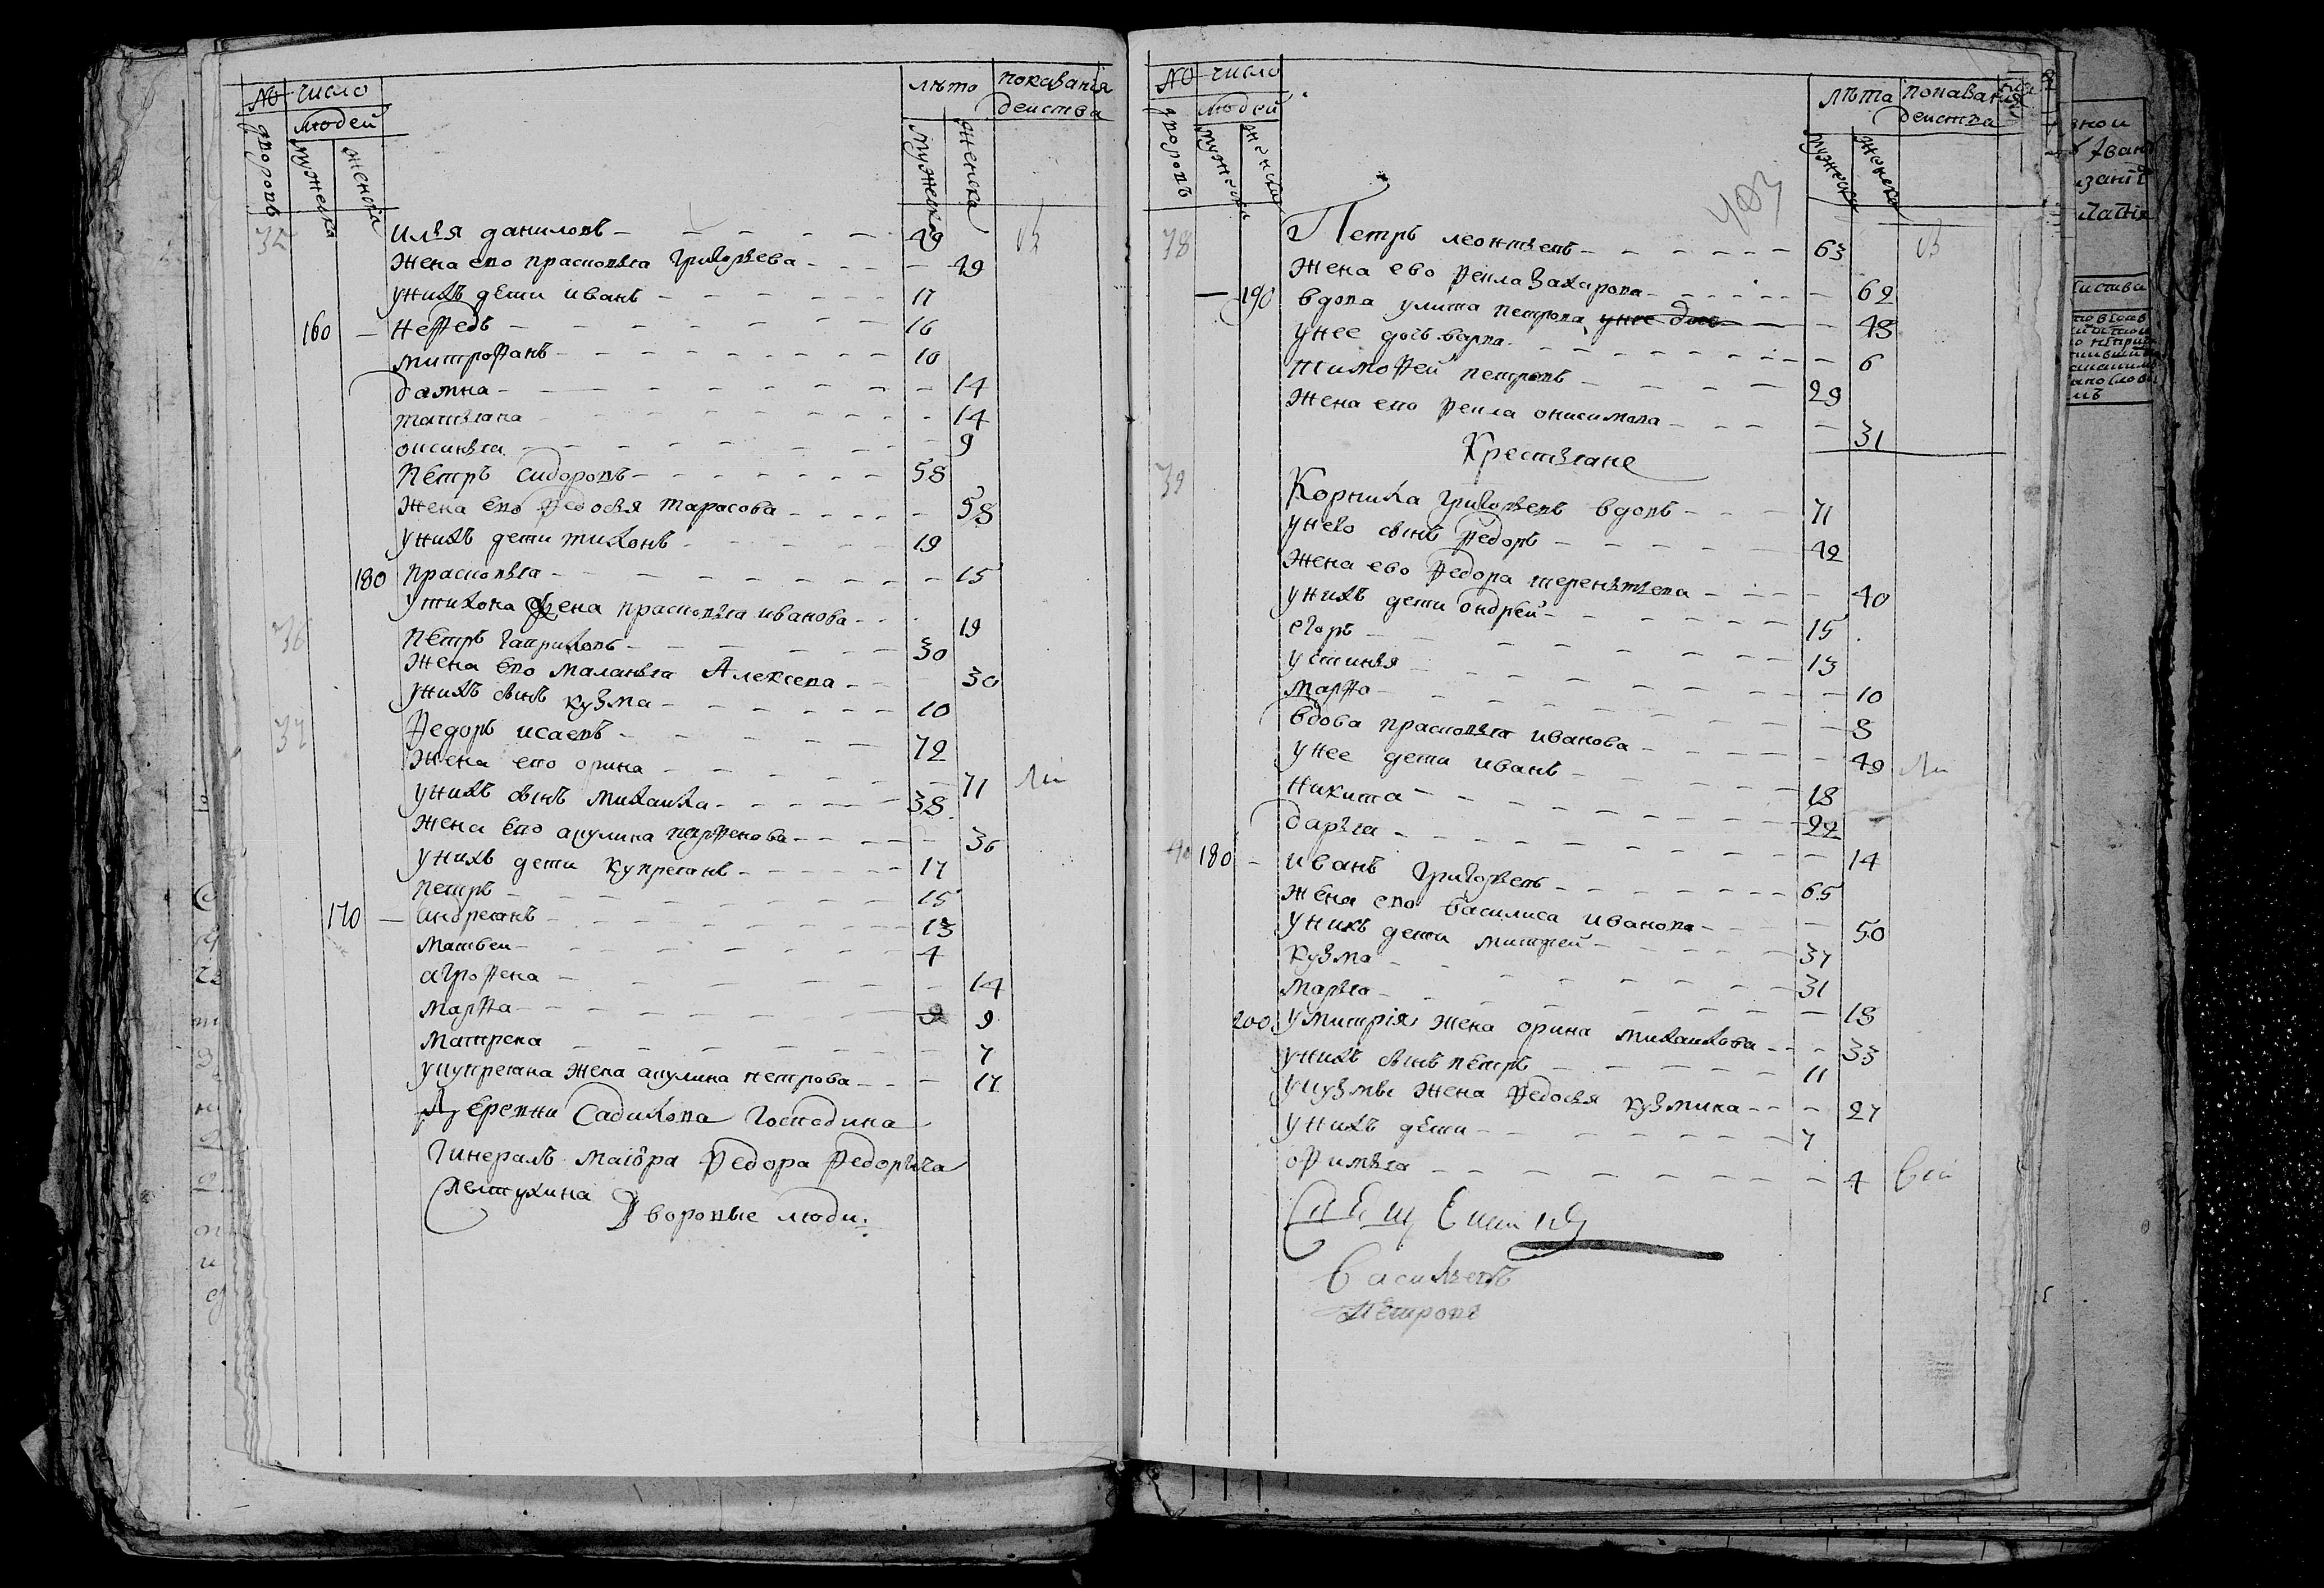 № число лѣто показанія
дворовъ людей деиства
мужеска женска мужеска женска
илья даниловъ — 49
жена ево прасковья григорьева — 49
унихъ дети иванъ — 17
160 — нефедъ — 16
митрофанъ — 10
домна — 14
татьяна — 14
оксинья — 9
петръ сидоровъ — 58
жена ево федосья тарасова — 58
унихъ дети тихонъ — 19
180 прасковья — 15
утихона жена прасковья иванова — 19
36 петръ гавриловъ — 30
жена ево маланья Алексева — 30
унихъ сынъ кузма — 10
37 федоръ исаевъ — 72
жена ево орина — 71
унихъ сынъ михаила — 38
жена ево акулина парфенова — 36
унихъ дети купреянъ — 17
петръ — 15
170 — андреянъ — 13
матвеи — 4
агрофена — 14
марфа — 9
матрена — 7
укупреяна жена акулина петрова — 17
Деревни Садикова Господина
Гинералъ маіора Федора Федорыча
Шетухина Дворовые люди:
№ число лѣта показания
дворовъ людей деиства
мужеска женска мужеска женска
403
38 Петръ леонтьевъ — 63
жена ево Фекла Захарова — 62
— 190 вдова улита петрова унее дочь — 48
унее дочь варва — 6
тимофей петровъ — 29
жена ево фекла онисимова — 31
Крестьяне
39 Корнила григорьевъ вдовъ — 71
унего сынъ федоръ — 42
жена ево федора терентьева — 40
унихъ дети ондрей — 15
егоръ — 13
устинья — 10
марфа — 8
вдова прасковья иванова — 49
унее дети иванъ — 18
никита — 22
дарья — 14
40 180 — иванъ григорьевъ — 65
жена ево василиса иванова — 50
унихъ дети митрей — 37
кузма — 31
марья — 18
200 умитрія жена орина михаилова — 33
унихъ сынъ петръ — 11
укузмы жена федосья кузмина — 27
унихъ дети — 7
офимья — 4
Васильевъ
Петровъ